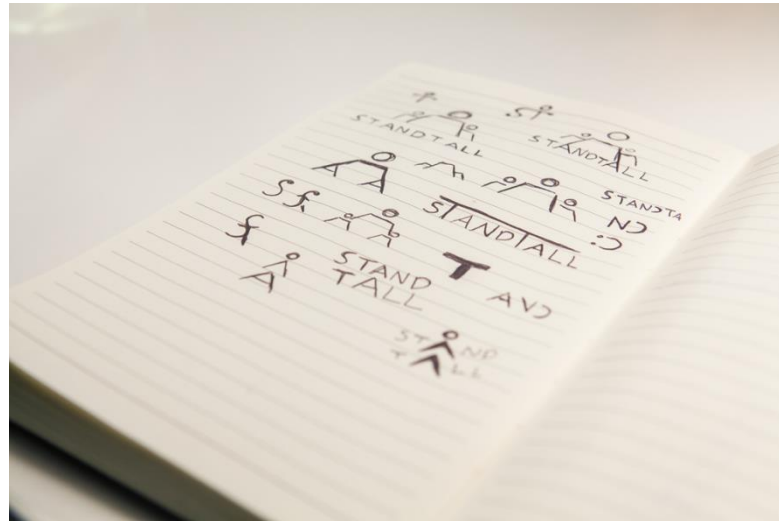 STANDTALL
STANDTALL
STANDTA
ND
STANDTALL
STAND
TALL
T
AND
STAND
TALL